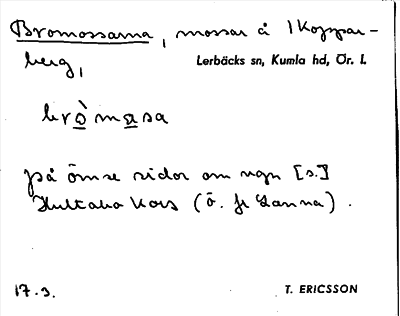 Bromossarna, mossar å 1 Koppar-
berg,
Lerbäcks sn, Kumla hd, Ör. l.
bròmasa
på ömse sidor om vägn [s.]
Hultabo kors (ö. fr Hanna).
17.3.
T. ERICSSON